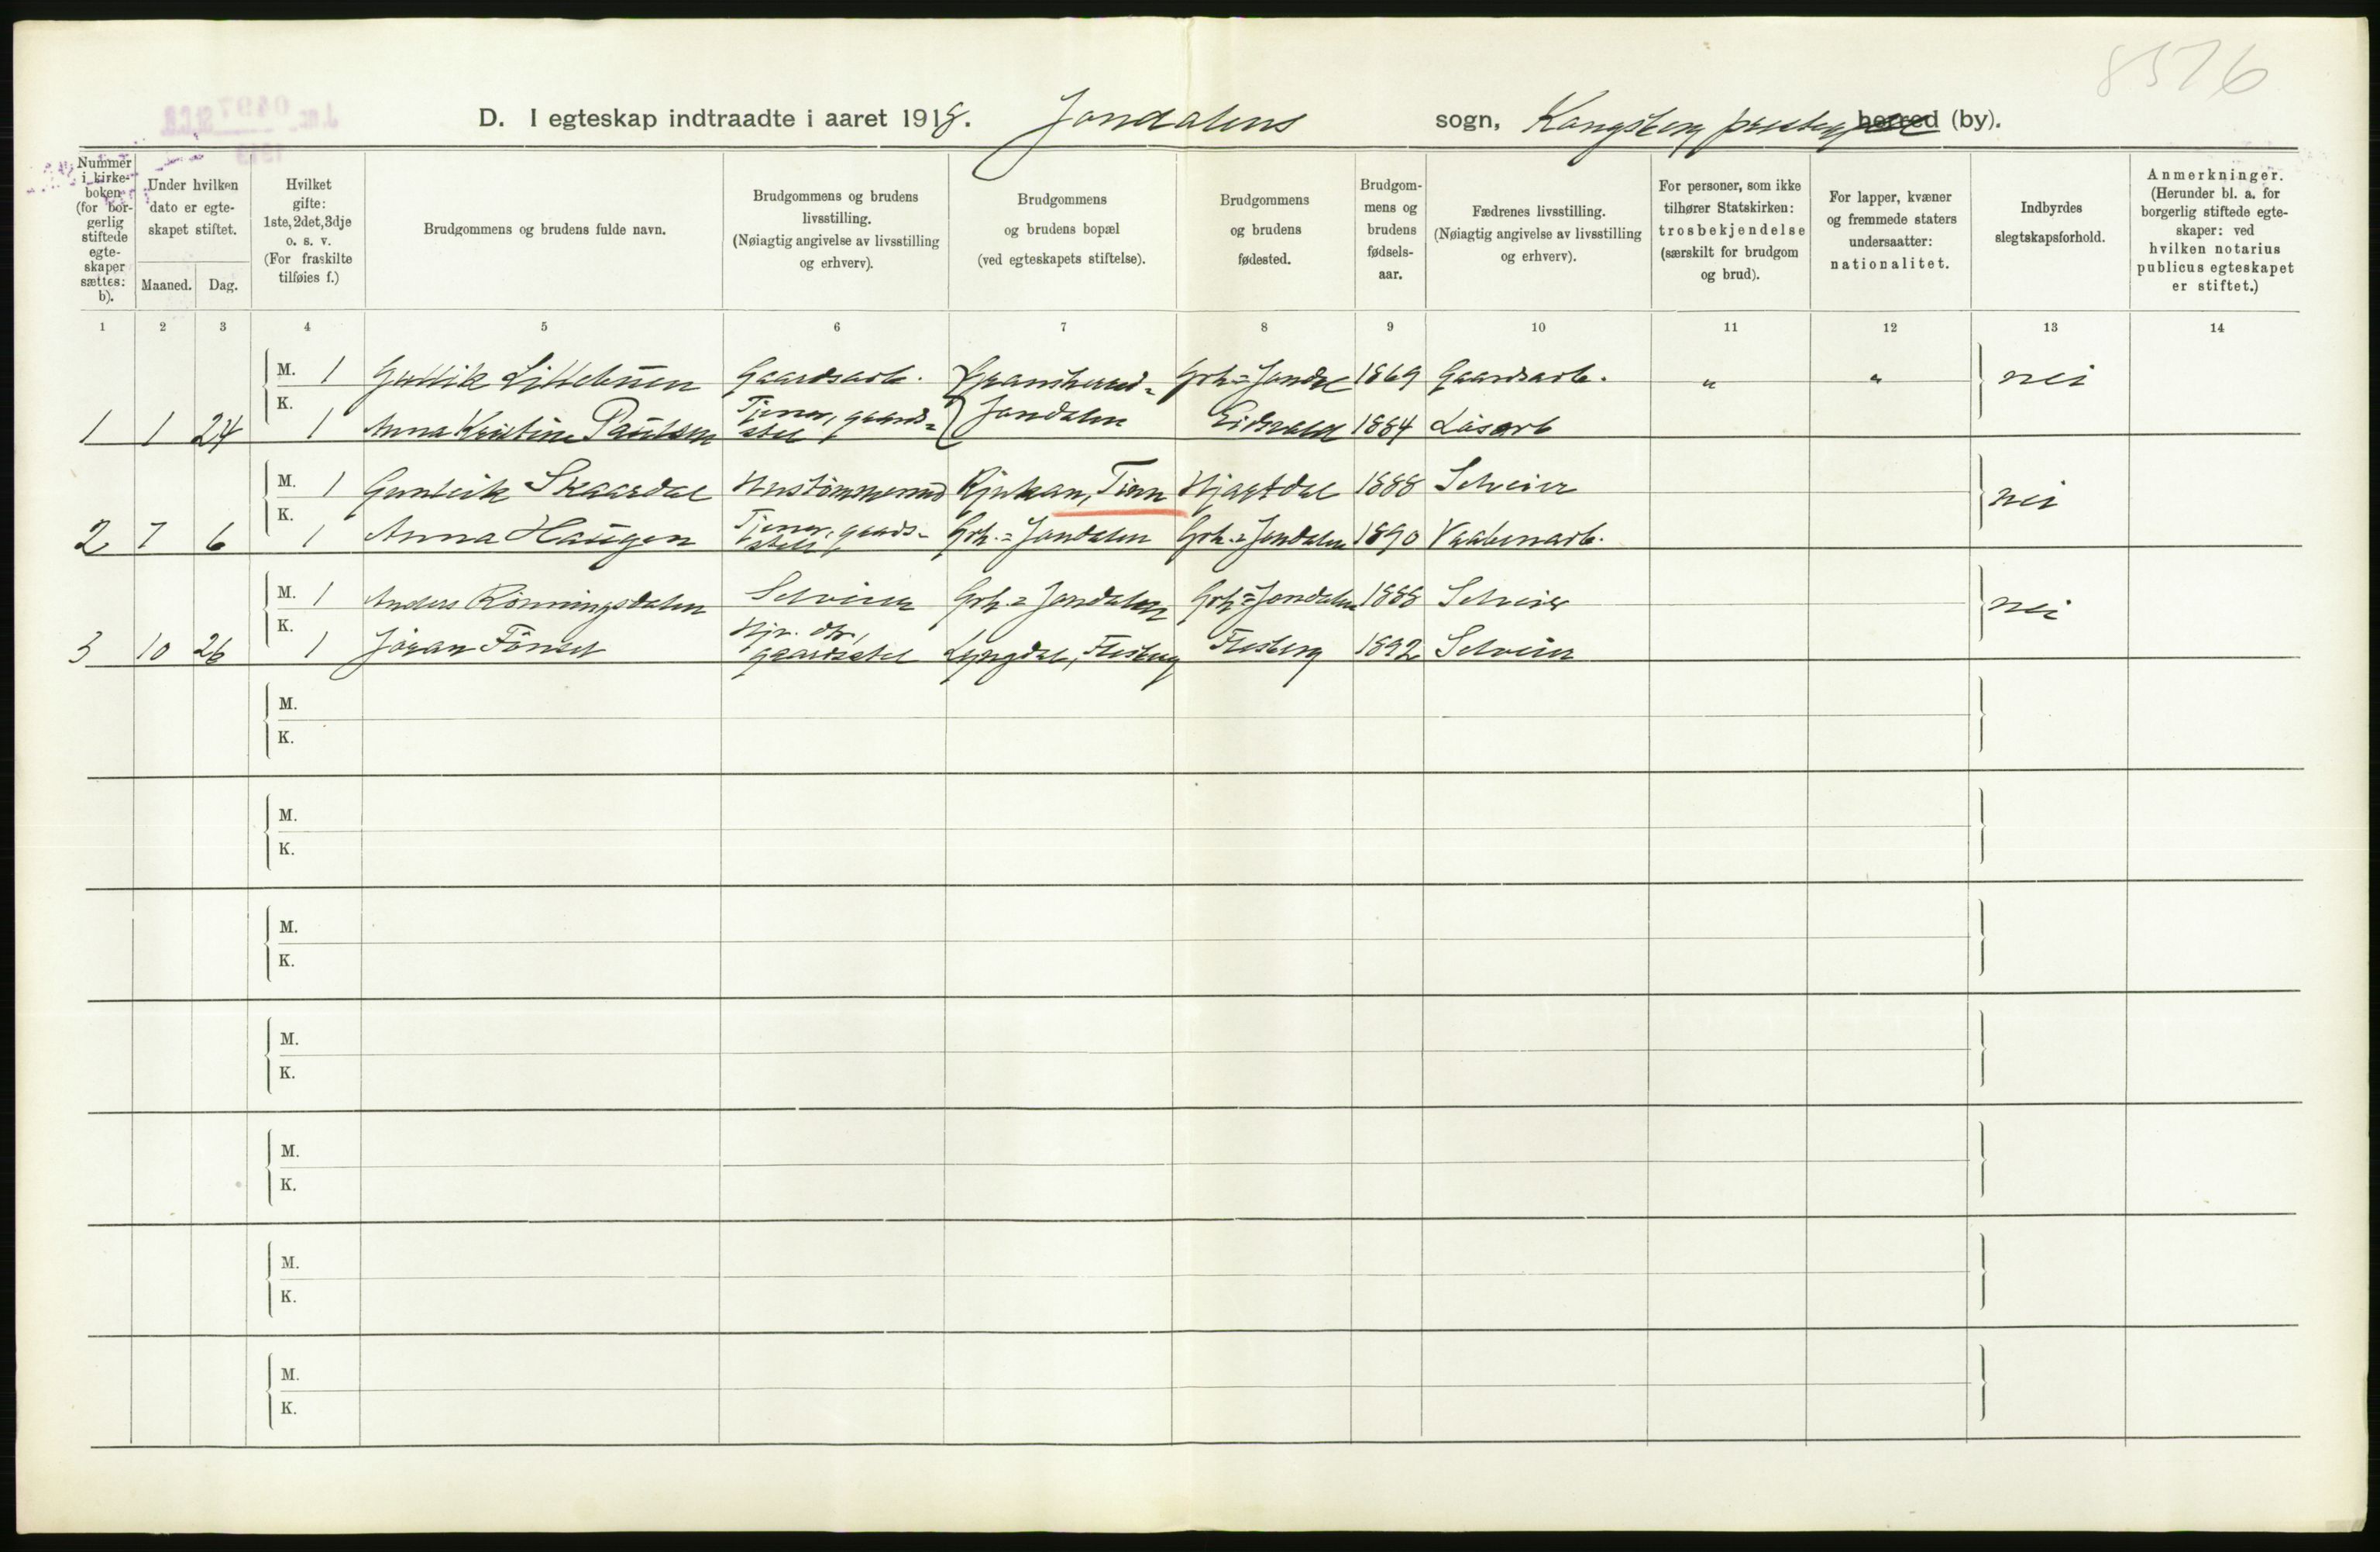 8576
D. I egteskap indtraadte i aaret 1918. Jondalens sogn, Kongsberg herred (by).
Nummer i kirke-boken (for bor-gerlig stiftede egte-skaper sættes: b).
Under hvilken dato er egte-skapet stiftet.
Maaned. Dag.
Hvilket gifte: 1ste, 2det, 3dje o. s. v. (For fraskilte tilføies f.)
Brudgommens og brudens fulde navn.
Brudgommens og brudens livsstilling. (Nøiagtig angivelse av livsstilling og erhverv).
Brudgommens og brudens bopæl (ved egteskapets stiftelse).
Brudgommens og brudens fødested.
Brudgom-mens og brudens fødsels-aar.
Fædrenes livsstilling. (Nøiagtig angivelse av livsstilling og erhverv).
For personer, som ikke tilhører Statskirken: trosbekjendelse (særskilt for brudgom og brud).
For lapper, kvæner og fremmede staters undersaatter: nationalitet.
Indbyrdes slegtskapsforhold.
Anmerkninger. (Herunder bl. a. for borgerlig stiftede egte-skaper: ved hvilken notarius publicus egteskapet er stiftet.)
1 2 3 4 5 6 7 8 9 10 11 12 13 14
M. 1 Gullik Littebuen Gaardsarb. Grh=Jondal 1869 Gaardsarb. " " nei
K.
1 1 24 1 Anna Kristine Paulsen Tjener, gaards=stel Jondalen Eidsvold 1884 Løsarb
M. 1 Gunleik Skaardal Hustømmermd Rjukan, Tinn Hjartdal 1888 Selveier nei
K.
2 7 6 1 Anna Haugen Tjener, gaards-stell Grh.=Jondalen Grh.=Jondalen 1890 Vaabenarb.
M. 1 Anders Rønningsdalen Selveier Grh.=Jondalen Grh=Jondalen 1888 Selveier nei
K.
3 10 26 1 Jøran Fønset Hjv. dtr, gaardsstel Lyngdal, Flesberg Flesberg 1892 Selveier
M.
K.
M.
K.
M.
K.
M.
K.
M.
K.
M.
K.
M.
K.